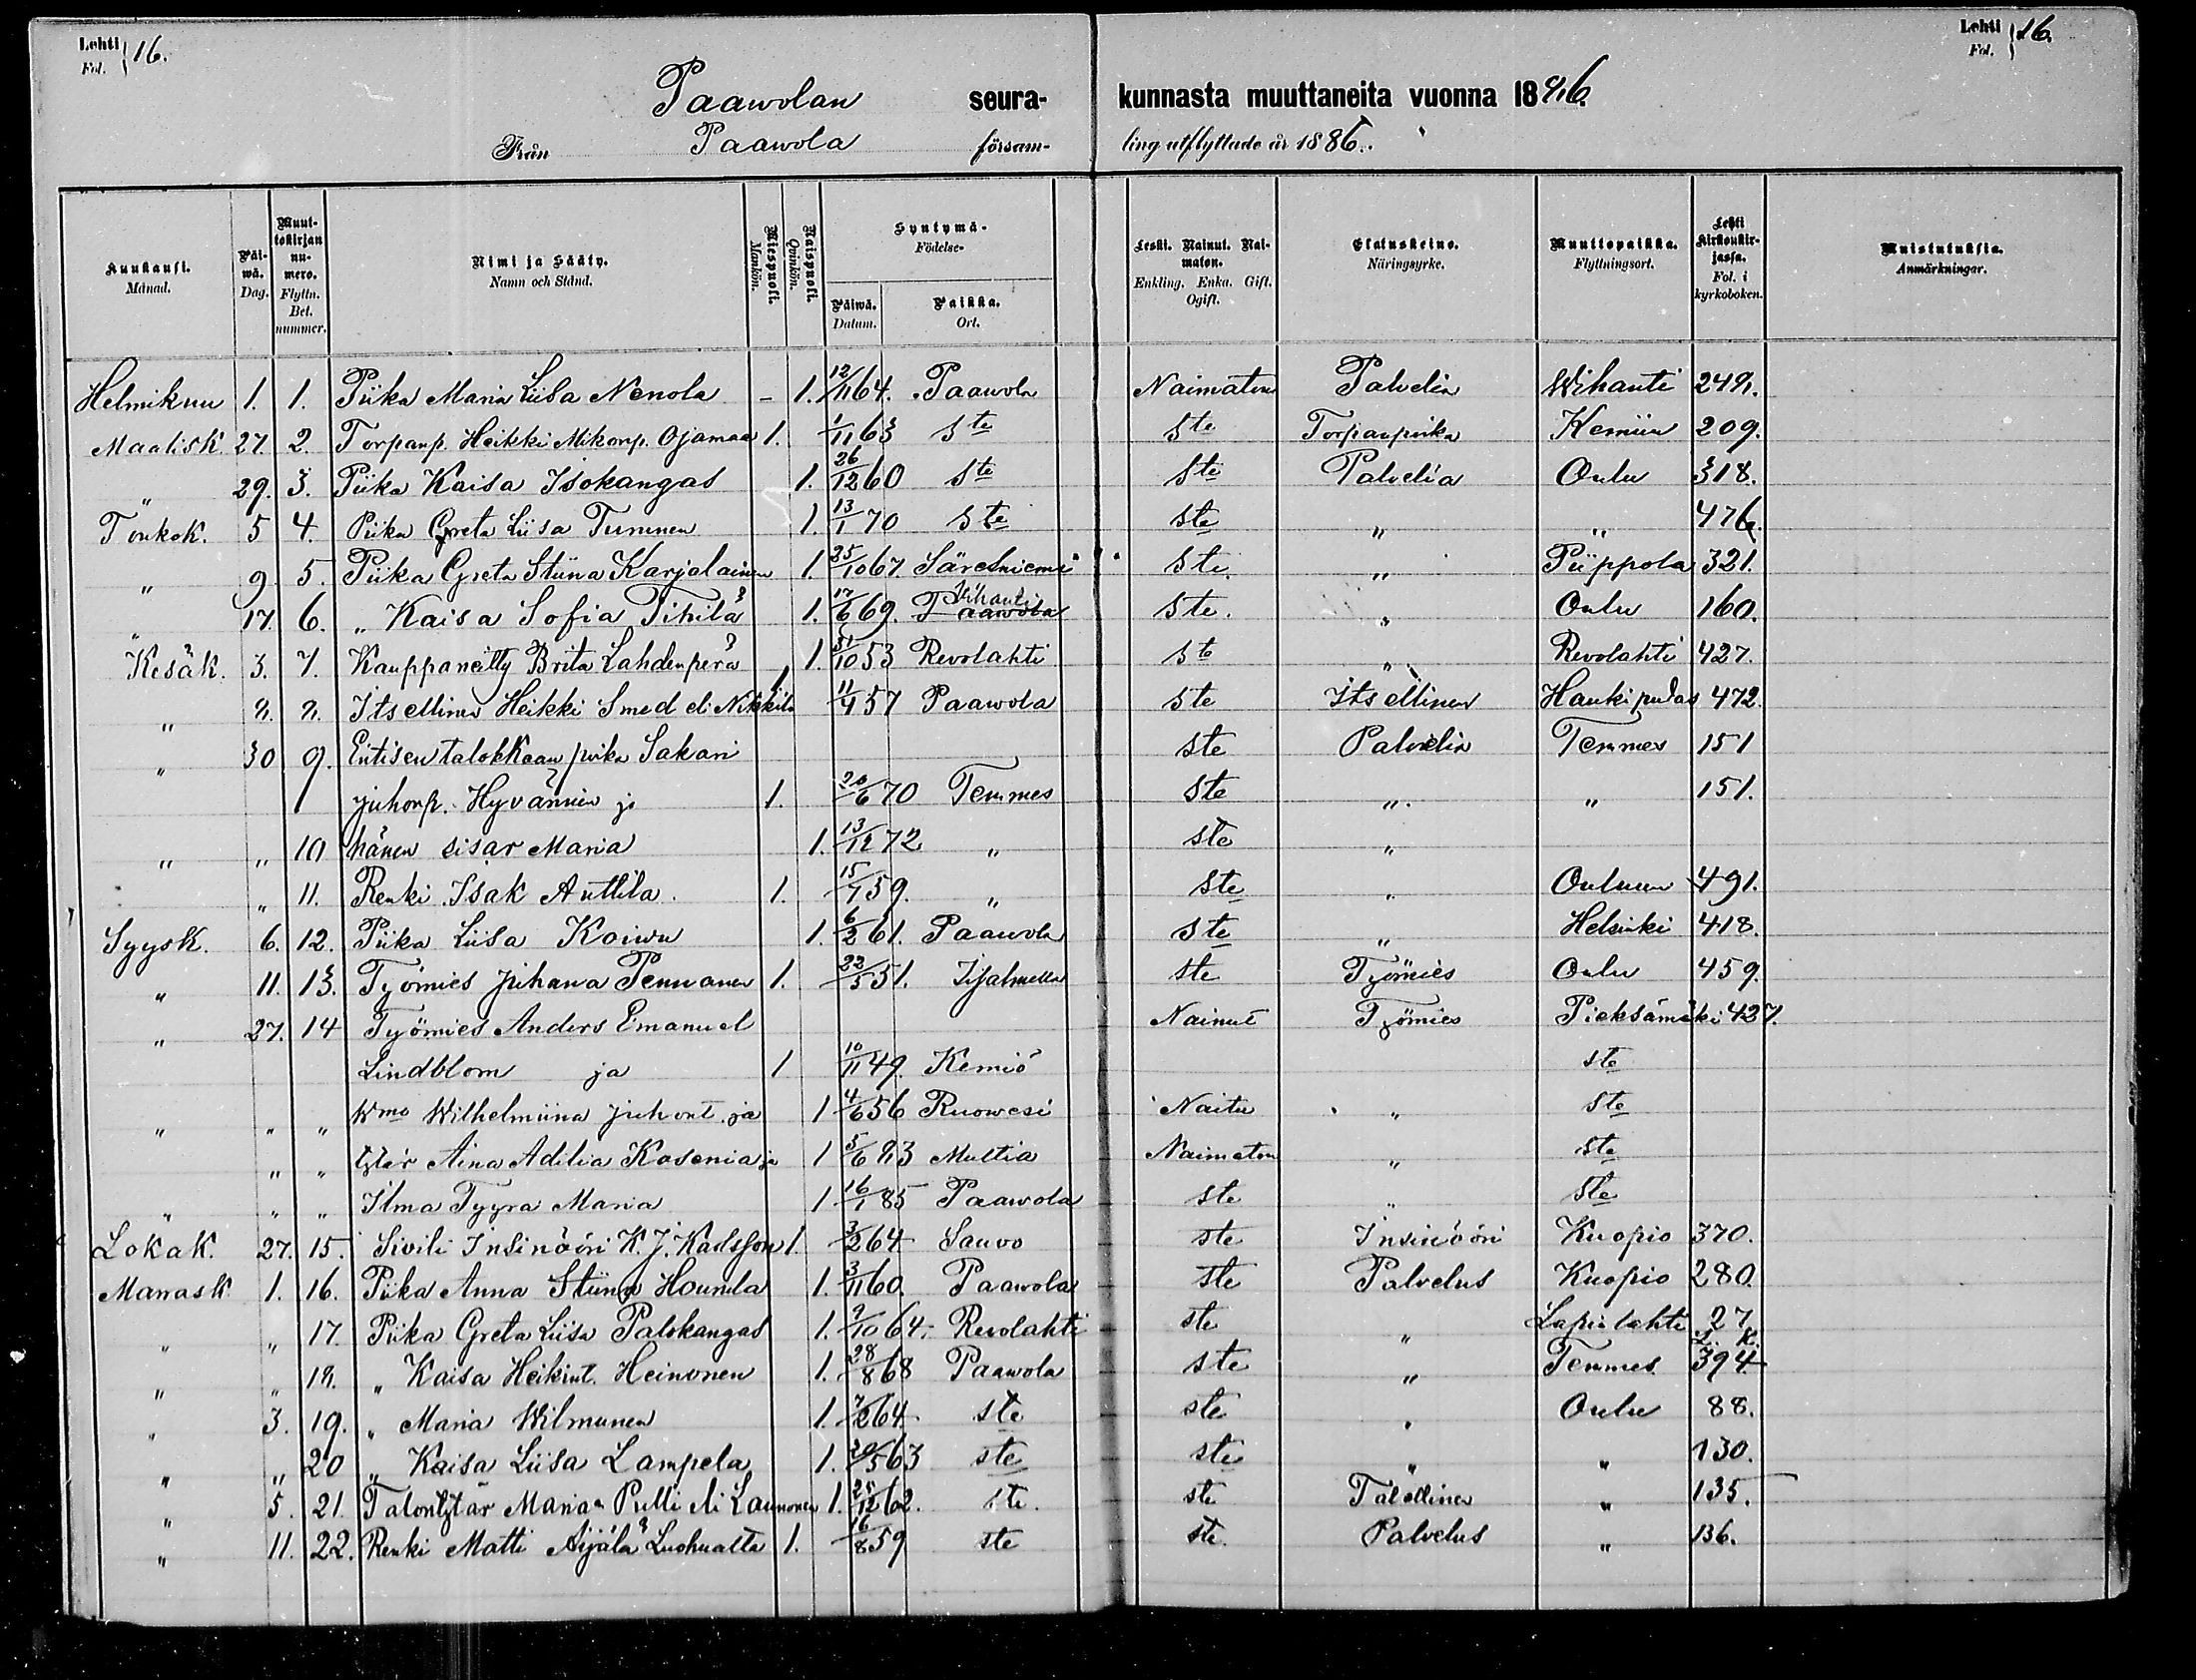 Lehti Fol. 16. Lehti Fol. 16.
Paawolan seura- kunnasta muuttaneita vuonna 1886.
Från Paawola försam- ling utflyttade år 1886.
Kuukausi. Månad. Päi-wä. Dag. Muut-tokirjan nu-mero. Flyttn. Bet. nummer. Nimi ja Sääty. Namn och Stånd. Miespuoli. Mankön. Naispuoli. Qvinkön. Syntymä- Födelse- Päiwä. Datum. Paikka. Ort. Leski. Nainut. Nai-maton. Enkling. Enka. Gift. Ogift. Elatuskeino. Näringsyrke. Muuttopaikka. Flyttningsort. Lehti Kirkonkir-jassa. Fol. i kyrkoboken. Muistutuksia. Anmärkningar.
Helmikuu 1. 1. Piika Maria Liisa Nenola - 1. 12/11 64. Paawola Naimaton Palvelia Wihanti 248.
Maalisk. 27. 2. Torpanp. Heikki Mikonp. Ojamaa 1. 1/11 63 Ste Ste Torpanpoika Kemiin 209.
" 29. 3. Piika Kaisa Isokangas 1. 26/12 60 Ste Ste Palvelia Oulu 318.
Toukok. 5 4. Piika Greta Liisa Tuminen 1. 13/1 70 Ste Ste " " 476.
" 9. 5. Piika Greta Stiina Karjalainen 1. 25/10 67. Säresniemi Ste. " Piippola 321.
" 17. 6. " Kaisa Sofia Tihilä 1. 17/6 69. Paawola Vihanti Ste. " Oulu 160.
Kesäk. 3. 7. Kauppaneitty Brita Lahdenperä 1. 31/10 53 Revolahti Ste " Revolahti 427.
" 8. 8. Itsellinen Heikki Smed eli Nikkilä 1 11/4 57 Paawola Ste Itsellinen Haukipudas 472.
" 30 9. Entisen talokkaan poika Sakari Ste Palvelia Temmes 151
juhonp. Hyvärinen ja 1. 20/6 70 Temmes Ste " " 151.
" " 10 hänen sisar Maria 1. 13/12 72 " Ste "
" 11. Renki Isak Anttila. 1. 15/7 59. " Ste " Ouluun 491.
Syysk. 6. 12. Piika Liisa Koiwu 1. 6/2 61. Paawola Ste " Helsinki 418.
" 11. 13. Työmies Juhana Pennanen 1. 22/5 51. Iisalmella Ste Työmies Oulu 459.
" 27. 14 Työmies Anders Emanuel Nainut Työmies Pieksämäki 427.
Lindblom ja 1 10/11 49. Kemiö ste
" " " Wmo Wilhelmiina Juhont. ja 1 4/6 56 Ruowesi Naitu " Ste
" " tytär Aina Adilia Kosenia ja 1 5/6 83 Multia Naimaton " Ste
" " " Ilma Tyyra Maria 1 16/1 85 Paawola Ste " Ste
Lokak. 27. 15. Sivili Insinööri K. J. Karlsson 1. 3/2 64 Sauvo ste Insinööri Kuopio 370.
Marrask 1. 16. Piika Anna Stiina Hourula 1. 3/11 60. Paawola Ste Palvelus Kuopio 280.
" " 17. Piika Greta Liisa Palokangas 1. 9/10 64. Revolahti ste " Lapinlahti 27 L. K.
" " 18. " Kaisa Heikint. Heinonen 1. 28/8 68 Paawola ste " Temmes. 394
" 3. 19. " Maria Wilmunen 1. 7/2 64. ste ste " Oulu 88.
" " 20 " Kaisa Liisa Lampela 1. 20/5 63 ste ste " " 130.
" 5. 21. Talontytär Maria Pulli eli Launonen 1. 25/12 62. ste. ste Talollinen " 135.
" 11. 22. Renki Matti Äijälä Luohualta 1. 16/8 59 ste ste. Palvelus " 136.